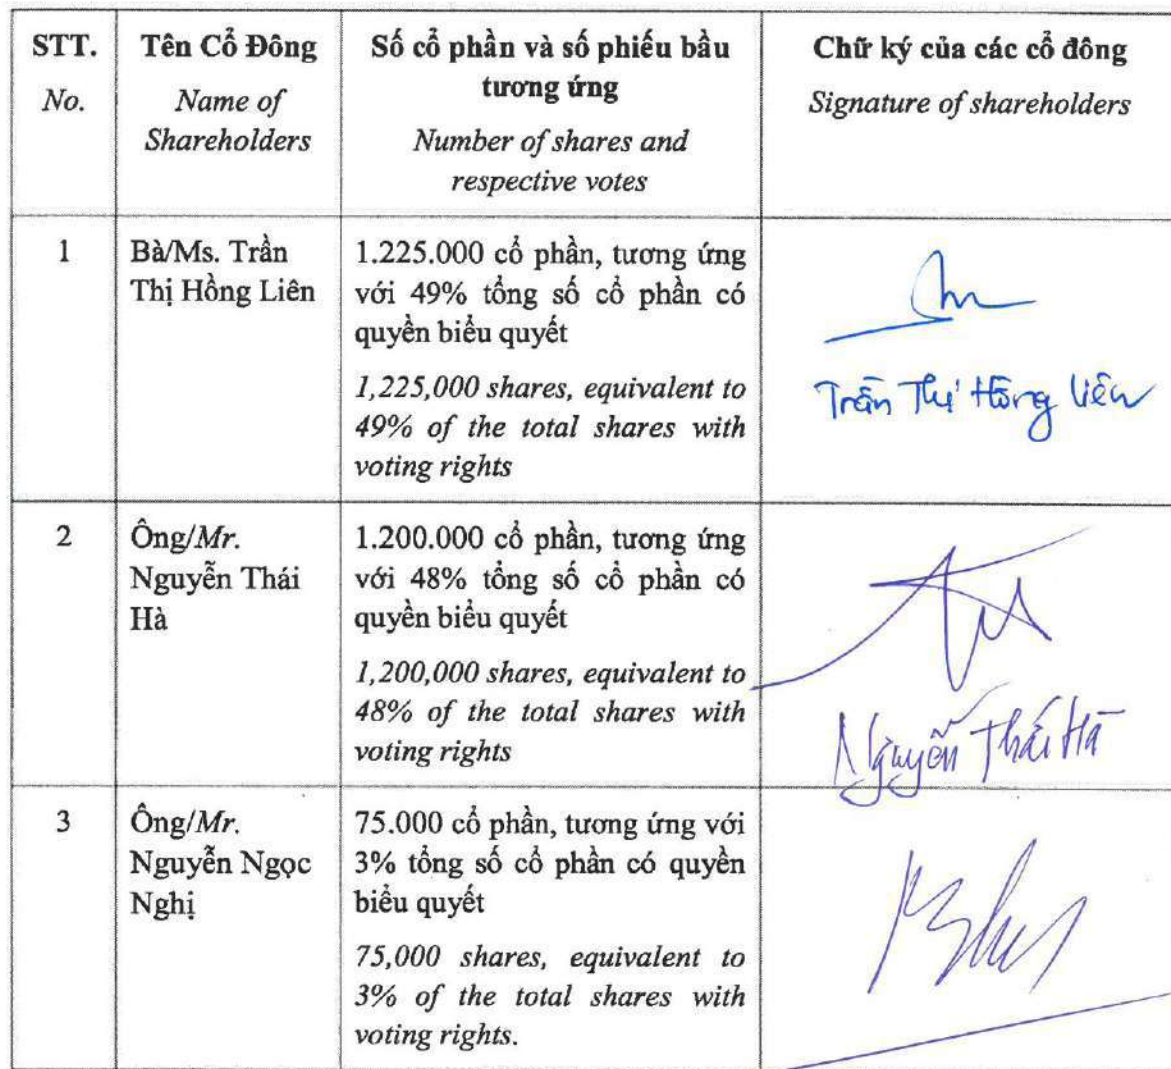 STT.
No.
Tên Cổ Đông
Name of
Shareholders
Số cổ phần và số phiếu bầu
tương ứng
Number of shares and
respective votes
Chữ ký của các cổ đông
Signature of shareholders
1
Bà/Ms. Trần
Thị Hồng Liên
1.225.000 cổ phần, tương ứng
với 49% tổng số cổ phần có
quyền biểu quyết
1,225,000 shares, equivalent to
49% of the total shares with
voting rights
Trần Thị Hồng Liên
2
Ông/Mr.
Nguyễn Thái
Hà
1.200.000 cổ phần, tương ứng
với 48% tổng số cổ phần có
quyền biểu quyết
1,200,000 shares, equivalent to
48% of the total shares with
voting rights
Nguyễn Thái Hà
3
Ông/Mr.
Nguyễn Ngọc
Nghị
75.000 cổ phần, tương ứng với
3% tổng số cổ phần có quyền
biểu quyết
75,000 shares, equivalent to
3% of the total shares with
voting rights.